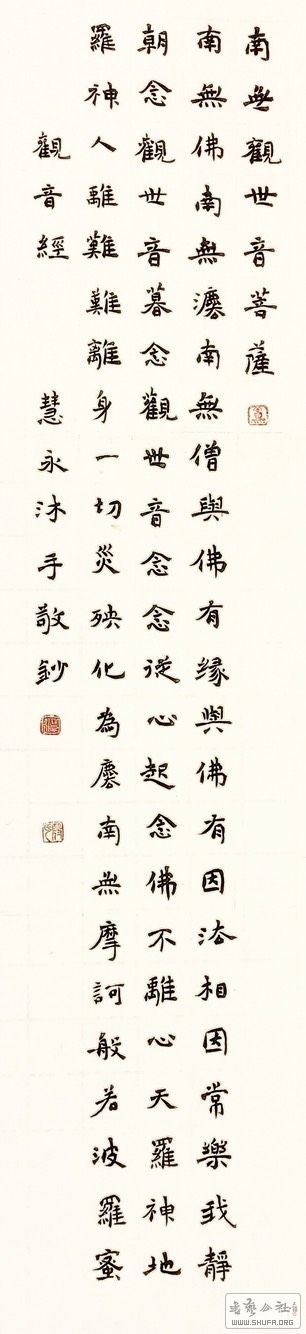 南無觀世音菩薩
南無佛南無灋南無僧與佛有緣與佛有因法相因常樂我靜
朝念觀世音暮念觀世音念念從心起念佛不離心天羅神地
羅神人離難難離身一切災殃化為塵南無摩訶般若波羅蜜
觀音經 慧永沐手敬鈔
書藝公社
WWW.SHUFA.ORG